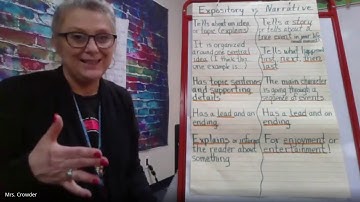 Expository vs Narrative
Tells about an idea
or topic (explains)
It is organized
around one central
idea (I think this,
one example is...)
Has topic sentences
and supporting
details
Has a lead and an
ending.
Explains or informs
the reader about
something
Tells a story
or tells about a
true event in your life
Tells what happened
first, next, then,
last
The main character
is going through a
sequence of events
Has a lead and an
ending.
For enjoyment or
entertainment!
Mrs. Crowder